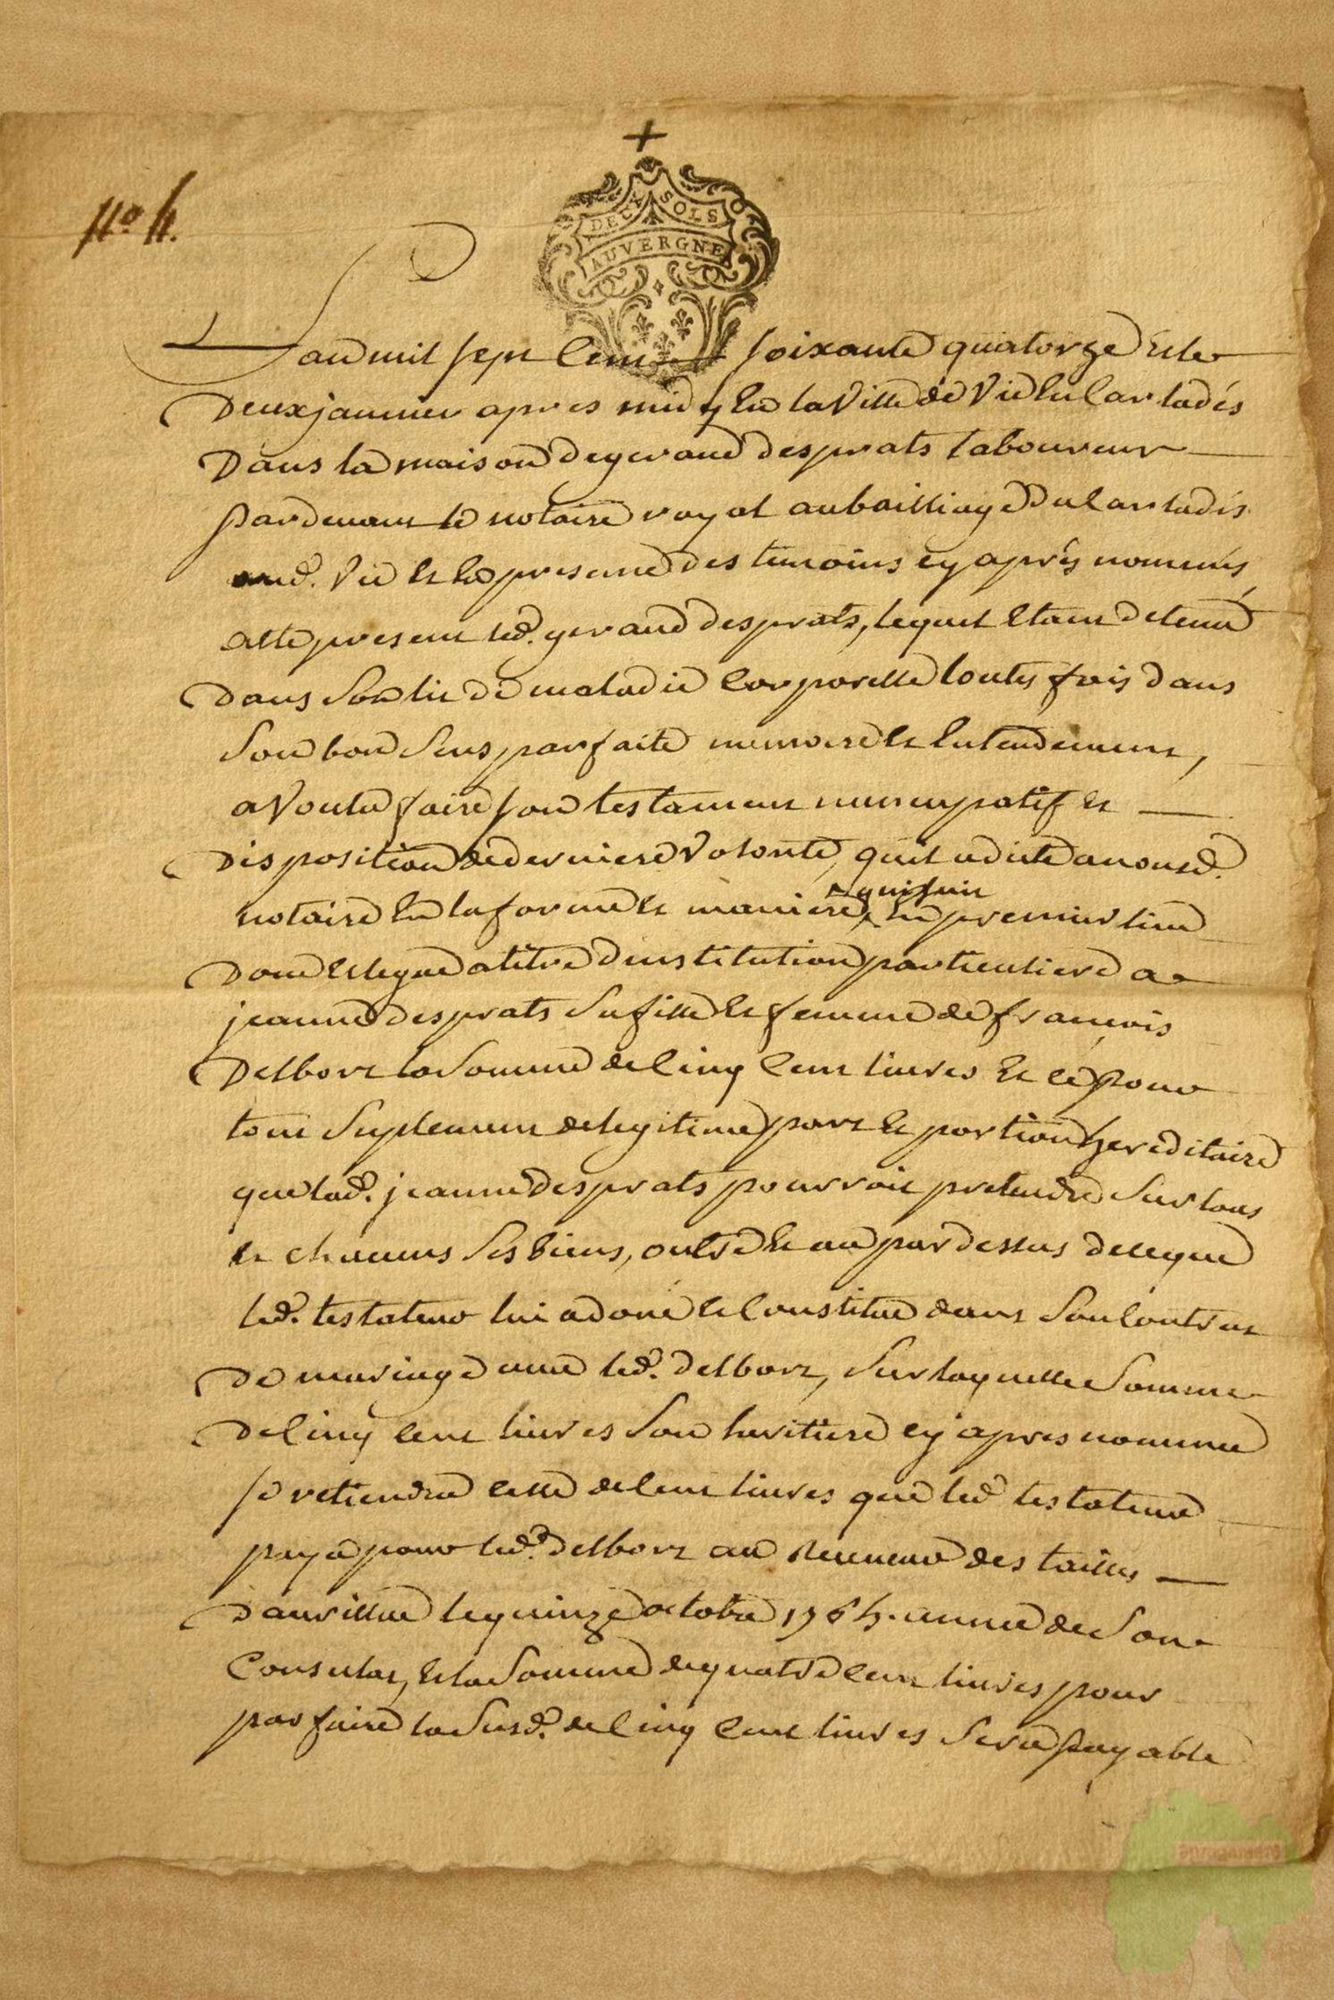 +
DEUX SOLS
AUVERGNE
no 4.
Lan mil sept cent soixante quatorze et le
deux janvier apres midy en la ville de Vic en Carladés
dans la maison de gerauد desprats laboureur
pardevant le notaire royal au bailliage du Carladés
aud. Vic et en presence des temoins cy aprés nommés
a eté present led. geraud desprats, lequel etant detenu
dans son lit de maladie corporelle toutes fois dans
son bon sens parfaite memoire et entendement,
a voulu faire son testament nuncupatif et
disposition de derniere volonté, quil a dicté a nousd.
notaire en la forme et maniere qui suit en premier lieu
done et legue a titre dinstitution particuliere a
jeanne desprats sa fille et femme de francois
delbort la somme de cinq cent livres et ce pour
tout suplement de legitime part et portion hereditaire
que lad. jeanne desprats pourroit pretendre sur tous
et chacuns ses biens, outre et au par dessus de ce que
led. testateur lui a doné et constitué dans son contrat
de mariage avec led. delbort, sur laquelle somme
de cinq cent livres son heritiere cy apres nommée
se retiendra celle de cent livres que led. testateur
paya pour led. delbort au receveur des tailles
daurillac le quinze octobre 1764. année de son
Consulat, et la somme de quatre cent livres pour
parfaire la susd. de cinq cent livres sera payable